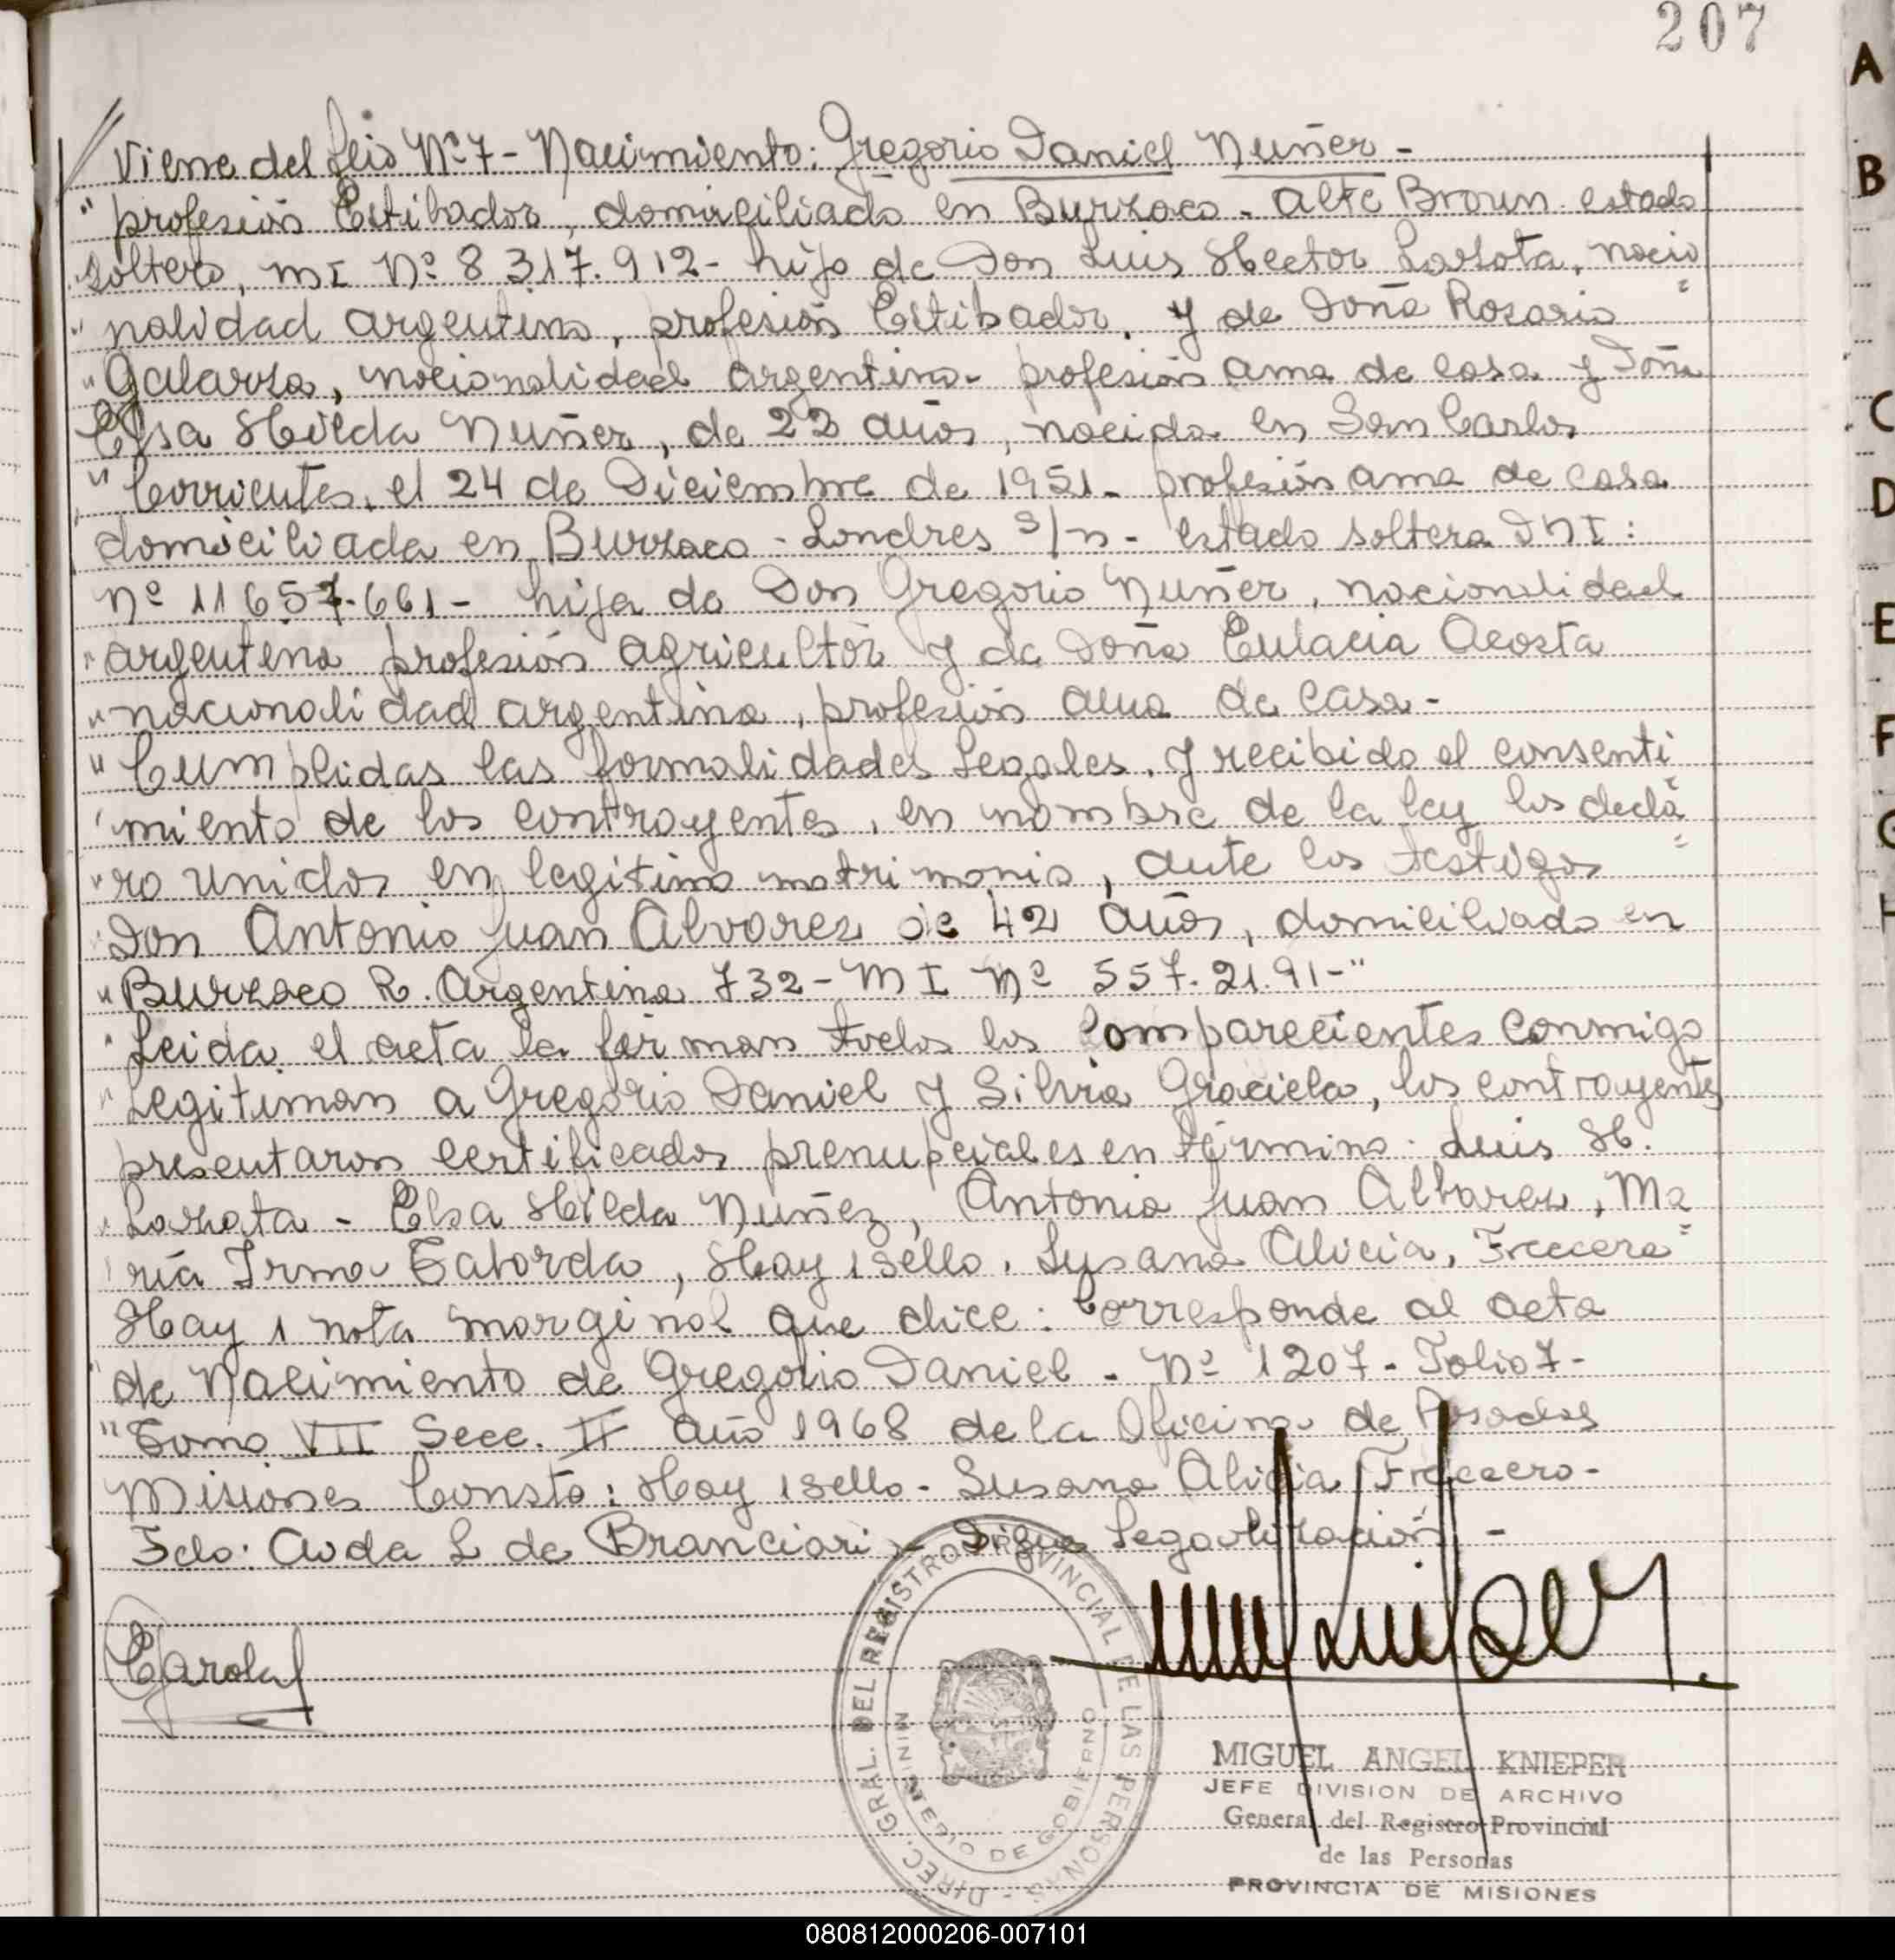 207
Viene del folio Nº 7 - Nacimiento: Gregorio Daniel Nuñez -
" profesión Estibador, domiciliado en Burzaco - Alte Brown estado
soltero, MI Nº 8 317.912 - hijo de Don Luis Hector Lozota, nacio
" nalidad argentina, profesión Estibador, y de Doña Rosario "
" Galarza, nacionalidad argentina - profesión ama de casa y Doña
Elsa Hilda Nuñez, de 22 años, nacida en San Carlos
" Corrientes, el 24 de Diciembre de 1951 - profesión ama de casa
domiciliada en Burzaco - Londres s/n - estado soltera DNI:
Nº 11 657.661 - hija de Don Gregorio Nuñez, nacionalidad
" argentina profesión agricultor y de Doña Eulacia Acosta
" nacionalidad argentina, profesión ama de casa -
" Cumplidas las formalidades Legales, y recibido el consenti
" miento de los contrayentes, en nombre de la ley los decla "
" ro unidos en legitimo matrimonio, ante los testigos "
" Don Antonio Juan Alvarez de 42 años, domiciliado en
" Burzaco R. Argentina 732 - MI Nº 557.21.91 - "
" Leida el acta la firman todos los comparecientes conmigo
" Legitiman a Gregorio Daniel y Silvia Graciela, los contrayentes
presentaron certificados prenupciales en término. Luis H.
" Lozota - Elsa Hilda Nuñez, Antonio Juan Albarez, Ma
ría Irma Taborda, Hay 1 sello. Susana Alicia, "
Hay 1 nota marginal que dice: Corresponde al acta
" de Nacimiento de Gregorio Daniel - Nº 1207 - Folio 7 -
" Tomo VII Secc. II año 1968 de la Oficina de Posadas
Misiones Consta: Hay 1 sello - Susana Alicia
Fdo: Aida L de Branciari - Sigue Legalización -
DIREC. GRAL. DEL REGISTRO PROVINCIAL DE LAS PERSONAS
MINISTERIO DE GOBIERNO
MIGUEL ANGEL KNIEPER
JEFE DIVISION DE ARCHIVO
General del Registro Provincial
de las Personas
PROVINCIA DE MISIONES
A
B
C
D
E
F
G
H
080812000206-007101